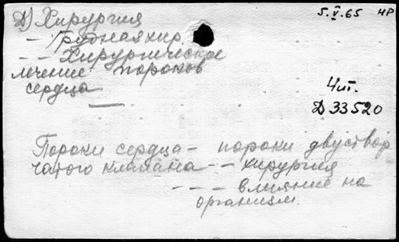 Д) Хирургия
5.V.65 НР
– Грудная хир.
– – Хирургическое
лечение пороков
сердца
4ит.
Д 33520
Пороки сердца – пороки двуствор
чатого клапана – – хирургия
– – – влияние на
организм.